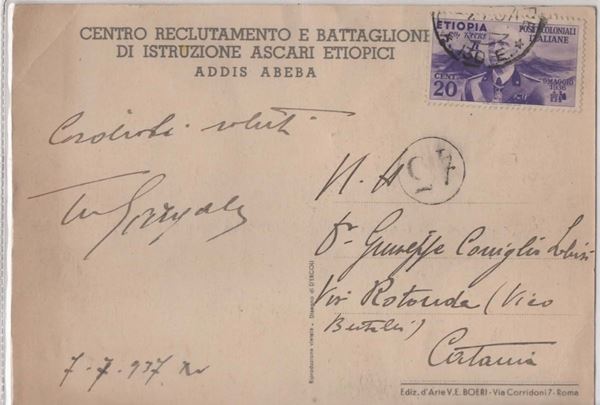 CENTRO RECLUTAMENTO E BATTAGLIONE
DI ISTRUZIONE ASCARI ETIOPICI
ADDIS ABEBA
ETIOPIA
POSTE COLONIALI
ITALIANE
CENT.
20
9 MAGGIO
1936
Cordiali saluti
7-7-937
45
N. H.
Dr. Giuseppe Coniglio
Via Rotonda (Vico
Catania
Riproduzione vietata - Disegno di D'ERCOLI
Ediz. d'Arte V.E. BOERI - Via Corridoni 7 - Roma